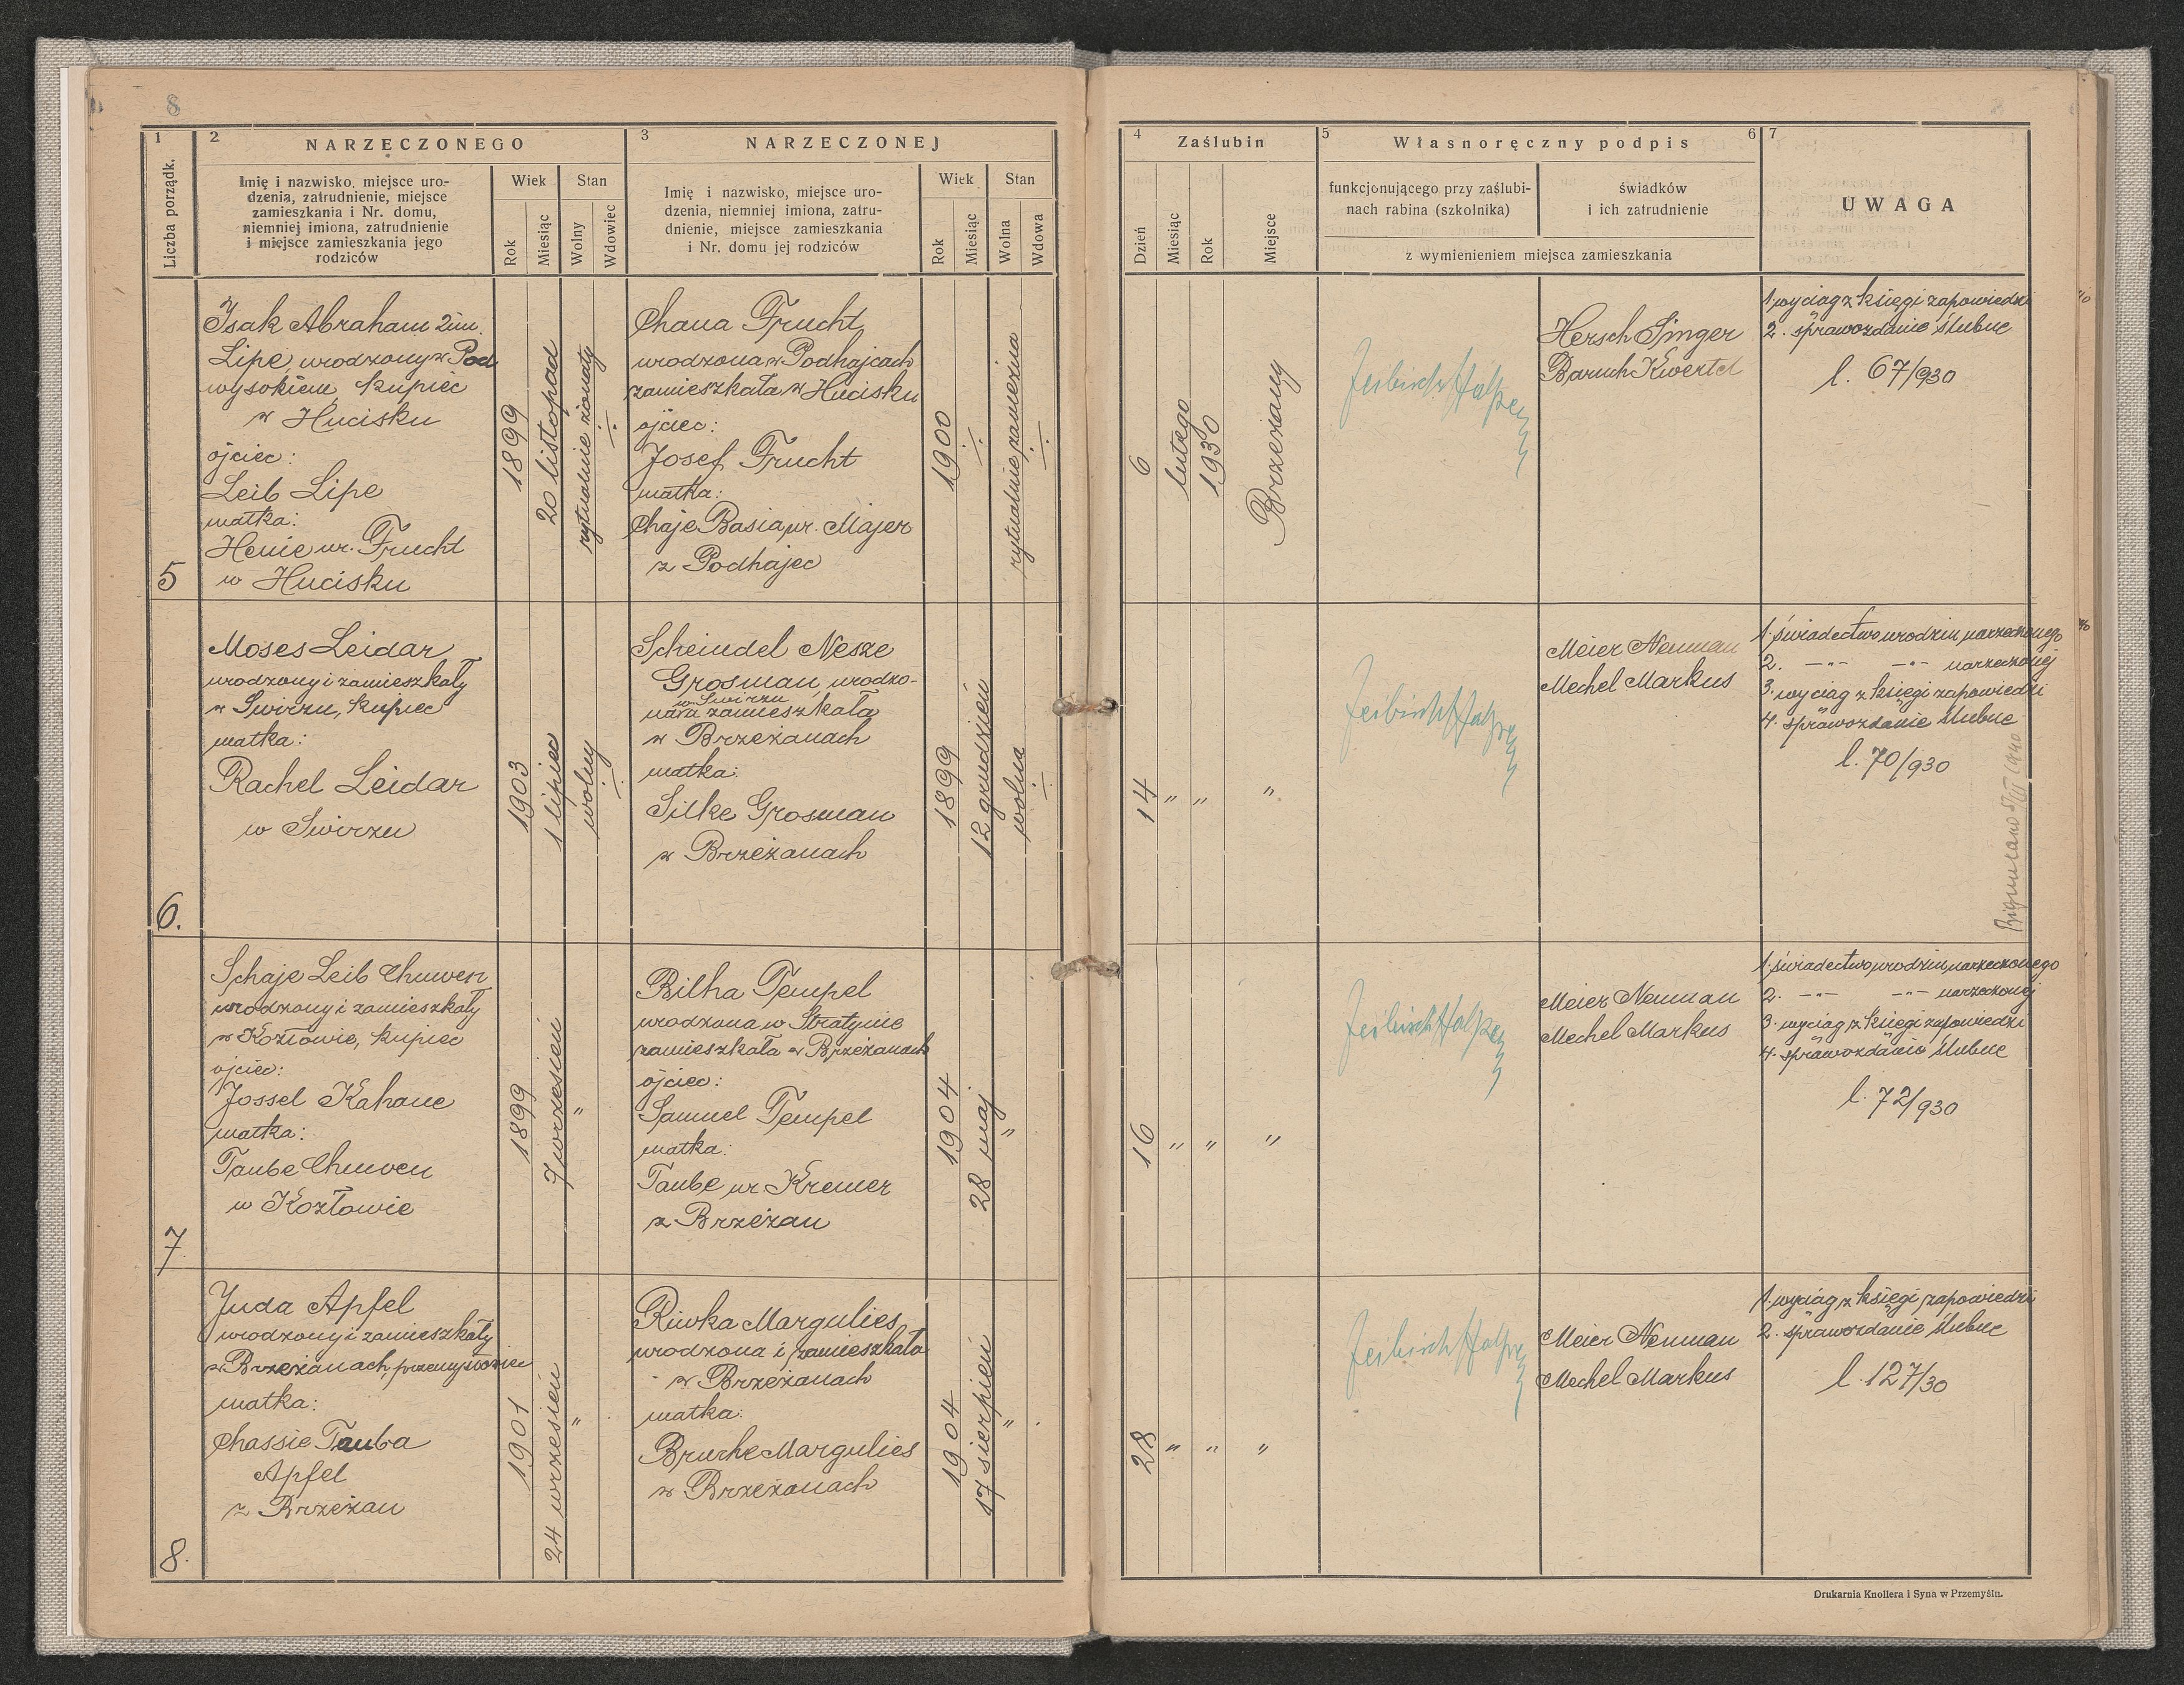 8
1
2 NARZECZONEGO
3 NARZECZONEJ
Liczba porządk.
Imię i nazwisko, miejsce uro-
dzenia, zatrudnienie, miejsce
zamieszkania i Nr. domu,
niemniej imiona, zatrudnienie
i miejsce zamieszkania jego
rodziców
Wiek
Rok
Miesiąc
Stan
Wolny
Wdowiec
Imię i nazwisko, miejsce uro-
dzenia, niemniej imiona, zatru-
dnienie, miejsce zamieszkania
i Nr. domu jej rodziców
Wiek
Rok
Miesiąc
Stan
Wolna
Wdowa
4 Zaślubin
Dzień
Miesiąc
Rok
Miejsce
5 Własnoręczny podpis 6
funkcjonującego przy zaślubi-
nach rabina (szkolnika)
świadków
i ich zatrudnienie
z wymienieniem miejsca zamieszkania
7
UWAGA
5
Isak Abraham 2im.
Lipe, urodzony w Pod
wysokiem, kupiec
w Hucisku
ojciec:
Leib Lipe
matka:
Henie ur. Frucht
w Hucisku
1899
20 listopad
rytualnie żonaty
Chana Frucht
urodzona w Podhajcach
zamieszkała w Hucisku
ojciec:
Josef Frucht
matka:
Chaje Basia ur. Majer
z Podhajec
1900
rytualnie zamężna
6
lutego
1930
Brzeżany
Feibisch Halpern
Hersch Singer
Baruch Kwertel
1. wyciąg z księgi zapowiedzi
2. sprawozdanie ślubne
l. 67/930
6.
Moses Leidar
urodzony i zamieszkały
w Świrzu, kupiec
matka:
Rachel Leidar
w Świrzu
1903
1 lipiec
wolny
Scheindel Nesze
Grosman, urodzo-
w Świrzu
na zamieszkała
w Brzeżanach
matka:
Silke Grosman
w Brzeżanach
1899
12 grudzień
wolna
14 " " "
Feibisch Halpern
Meier Neuman
Mechel Markus
1. świadectwo urodzin narzeczonego
2. —"— —"— narzeczonej
3. wyciąg z księgi zapowiedzi
4. sprawozdanie ślubne
l. 70/930
7.
Schaje Leib Chuwen
urodzony i zamieszkały
w Kozłowie, kupiec
ojciec:
Jossel Kahane
matka:
Taube Chuwen
w Kozłowie
1899
7 wrzesień
"
Bilha Tempel
urodzona w Stratynie
zamieszkała w Brzeżanach
ojciec:
Samuel Tempel
matka:
Taube ur Kremer
z Brzeżan
1904
28 maj
"
16 " " "
Feibisch Halpern
Meier Neuman
Mechel Markus
1. świadectwo urodzin narzeczonego
2. —"— —"— narzeczonej
3. wyciąg z księgi zapowiedzi
4. sprawozdanie ślubne
l. 72/930
8.
Juda Apfel
urodzony i zamieszkały
w Brzeżanach, przemysłowiec
matka:
Chassie Tauba
Apfel
z Brzeżan
1901
24 wrzesień
"
Riwka Margulies
urodzona i zamieszkała
w Brzeżanach
matka:
Bruche Margulies
w Brzeżanach
1904
17 sierpień
"
28 " " "
Feibisch Halpern
Meier Neuman
Mechel Markus
1. wyciąg z księgi zapowiedzi
2. sprawozdanie ślubne
l. 127/30
Drukarnia Knollera i Syna w Przemyślu.